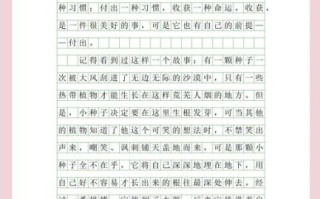 种习惯；付出一种习惯，收获一种命运。收获，
是一件很美好的事，可是它也有自己的前提—
—付出。
记得看到过这样一个故事：有一颗种子一
次被大风刮进了无边无际的沙漠中，只有一些
热带植物才能生长在这样荒芜人烟的地方。但
是，小种子决定要在这里生根发芽，可当其他
的植物知道了他这个可笑的想法时，不禁笑出
声来，嘲笑、讽刺铺天盖地而来。可是那颗小
种子全不在乎。它将自己深深地埋在地下，用
自己好不容易才长出来的根往最深处伸去。经